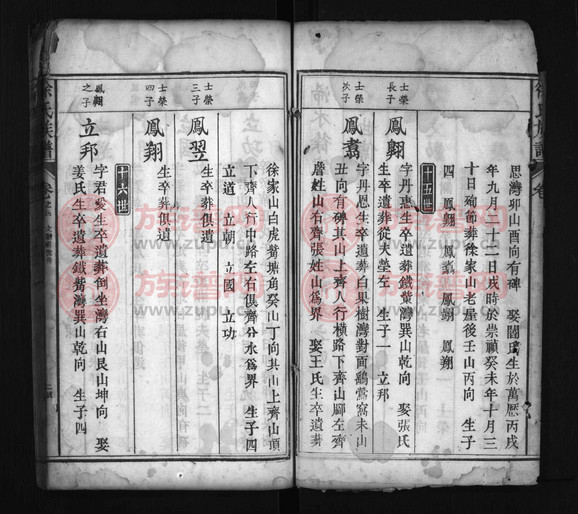 思灣卯山酉向有碑 娶閻氏生於萬歷丙戌
年九月二十二日戌時於崇禎癸未年十月三
十日殉節葬徐家山老屋後壬山丙向 生子
四 鳳翱 鳳翥 鳳翊 鳳翔
十五世
士榮長子
鳳翱
字丹惠生卒遺葬鐵葉灣巽山乾向 娶張氏
生卒遺葬從夫塋左 生子一 立邦
士榮次子
鳳翥
字丹恩生卒遺葬白果樹灣對面鷂鶯窩未山
丑向有碑其山上齊人行橫路下齊山腳左齊
詹姓山右齊張姓山爲界 娶王氏生卒遺葬
徐家山白虎觜塘角癸山丁向其山上齊山頂
下齊人行中路左右俱齊分水爲界 生子四
立道 立朝 立國 立功
士榮三子
鳳翌
生卒葬俱遺
士榮四子
鳳翔
生卒葬俱遺
十六世
鳳翱之子
立邦
字君愛生卒遺葬倒坐灣右山艮山坤向 娶
姜氏生卒遺葬鐵觜灣巽山乾向 生子四
徐氏族譜
族譜网
www.zupu.cn